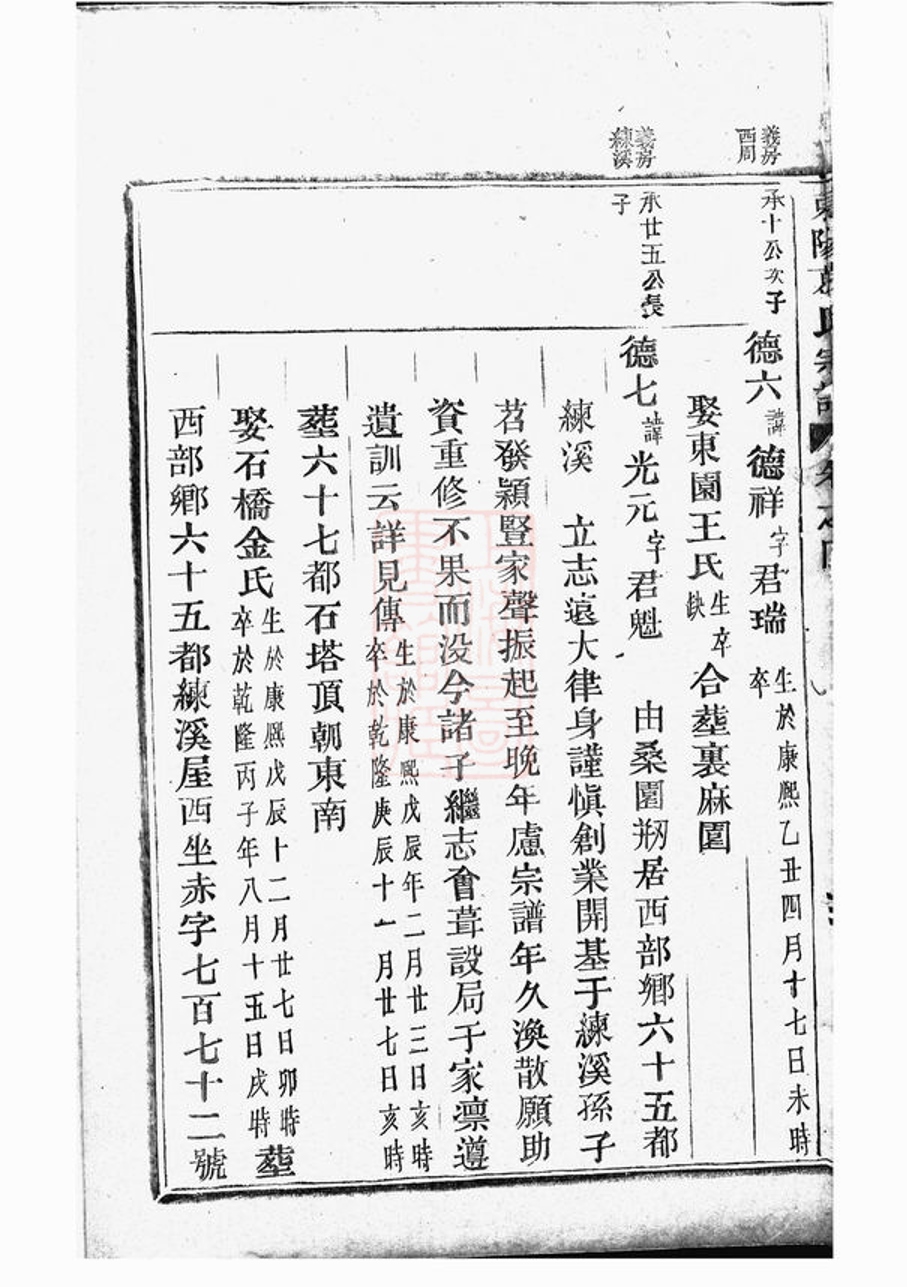 義房
西周
承十公次子
德六諱德祥字君瑞
生於康熙乙丑四月十七日未時
卒
娶東園王氏
生卒
缺
合塟裏麻園
義房
練溪
承廿五公長
子
德七諱光元字君魁 由桑園剏居西部鄉六十五都
練溪 立志遠大律身謹慎創業開基于練溪孫子
苕發穎豎家聲振起至晚年慮宗譜年久渙散願助
資重修不果而没今諸子繼志會葺設局于家凛遵
遺訓云詳見傳
生於康熙戊辰年二月廿三日亥時
卒於乾隆庚辰十一月廿七日亥時
塟六十七都石塔頂朝東南
娶石橋金氏
生於康熙戊辰十二月廿七日卯時
卒於乾隆丙子年八月十五日戌時
塟
西部鄉六十五都練溪屋西坐赤字七百七十二號